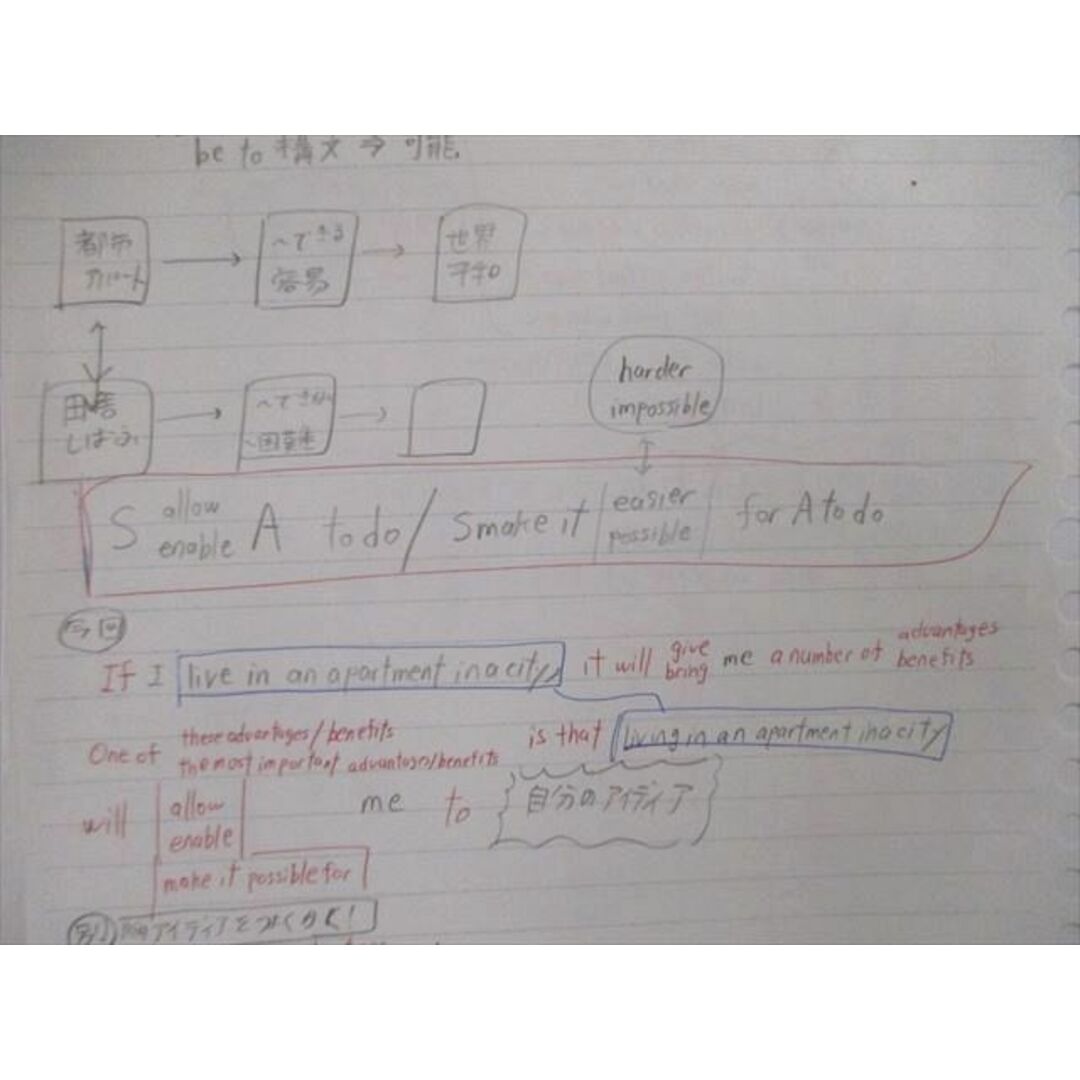 be to 構文 ⇒ 可能.
都市 → ~できる → 世界
アパート 容易 平和
田舎 → ~できない →
しばふ 困難
harder
impossible
S allow A to do / S make it easier for A to do
enable possible
今回
If I live in an apartment in a city, it will give me a number of advantages
bring benefits
One of these advantages/benefits is that living in an apartment in a city
the most important advantages/benefits
will allow me to 自分のアイディア
enable
make it possible for
アイディアを